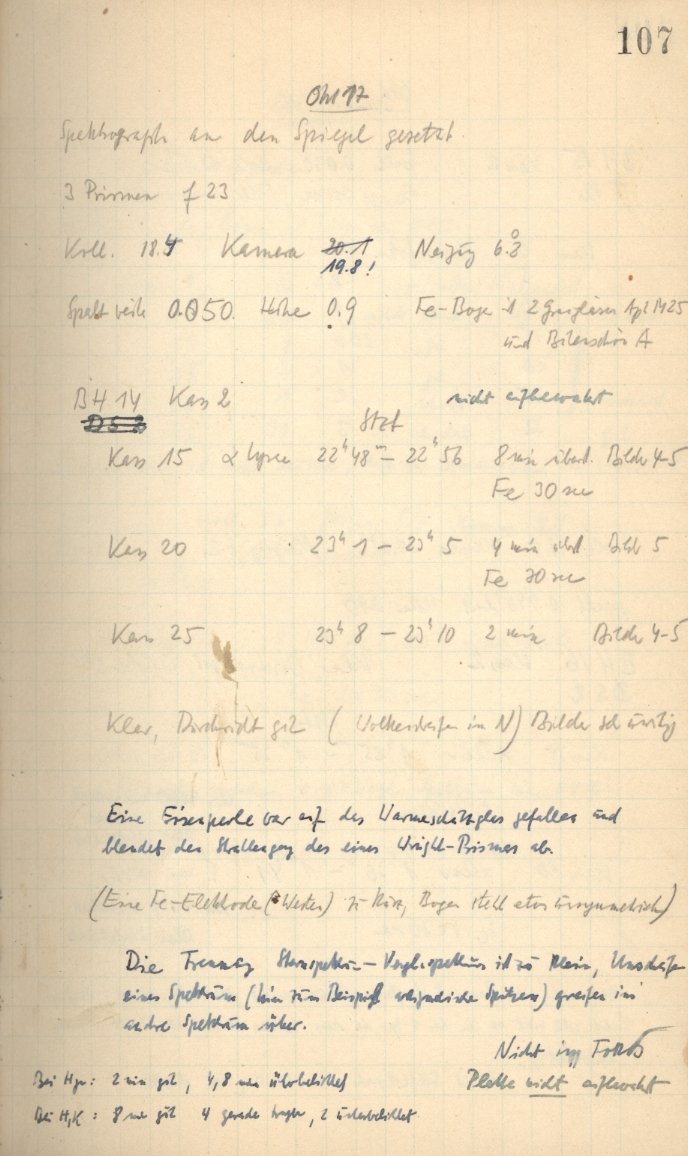 107
Okt 17
Spektrograph an den Spiegel gesetzt.
3 Prismen f 23
Koll. 18.4 Kamera 20.1 Neigung 6.8
19.8!
Spalt weite 0.050. Höhe 0.9 Fe-Bogen 2
und A
BH 14 Kass 2 nicht aufbewahrt
Kass 15 α Lyrae 22h 48m – 22h 56 8 min Bilder 4-5
Fe 30 sec
Kass 20 23h 1 – 23h 5 4 min Bild 5
Fe 30 sec
Kass 25 23h 8 – 23h 10 2 min Bilder 4-5
Klar, Durchsicht gut (Wolkenstreifen im N) Bilder
Eine Eisenperle war auf das Wärmeschutzglas gefallen und
blendet den Strahlengang des einen Wright-Prismas ab.
(Eine Fe-Elektrode (Westen) zu kurz, Bogen steht etwas unsymmetrisch)
Die Trennung Sternspektrum – ist zu klein,
eines Spektrums (hier zum Beispiel Spitzen) greifen ins
andre Spektrum über.
Nicht im Fokus
Bei Hγ: 2 min gut, 4, 8 min überbelichtet Platte nicht aufbewahrt
Bei H,K: 8 min gut 4 gerade 2 unterbelichtet